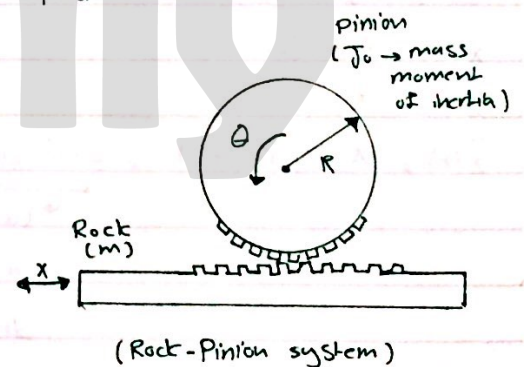 Pinion
(J₀ → mass
moment
of inertia)
θ
R
Rock
(m)
x
(Rock-Pinion system)